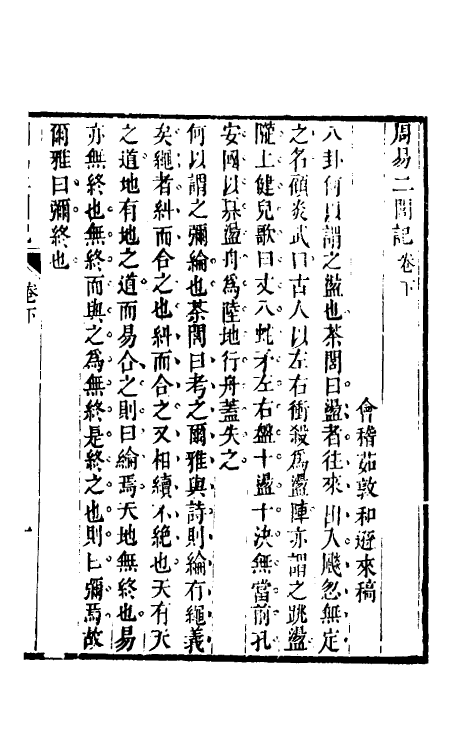 周易二閭記卷下
會稽茹敦和遜來稿
八卦何以謂之盪也茶閭曰盪者往來出入飈忽無定
之名顧炎武曰古人以左右衝殺爲盪陣亦謂之跳盪
隴上健兒歌曰丈八蛇矛左右盤十盪十決無當前孔
安國以奡盪舟爲陸地行舟蓋失之
何以謂之彌綸也茶閭曰考之爾雅與詩則綸有繩義
矣繩者糾而合之也糾而合之又相續不絶也天有天
之道地有地之道而易合之則曰綸焉天地無終也易
亦無終也無終而與之爲無終是終之也則曰彌焉故
爾雅曰彌終也
卷下
一